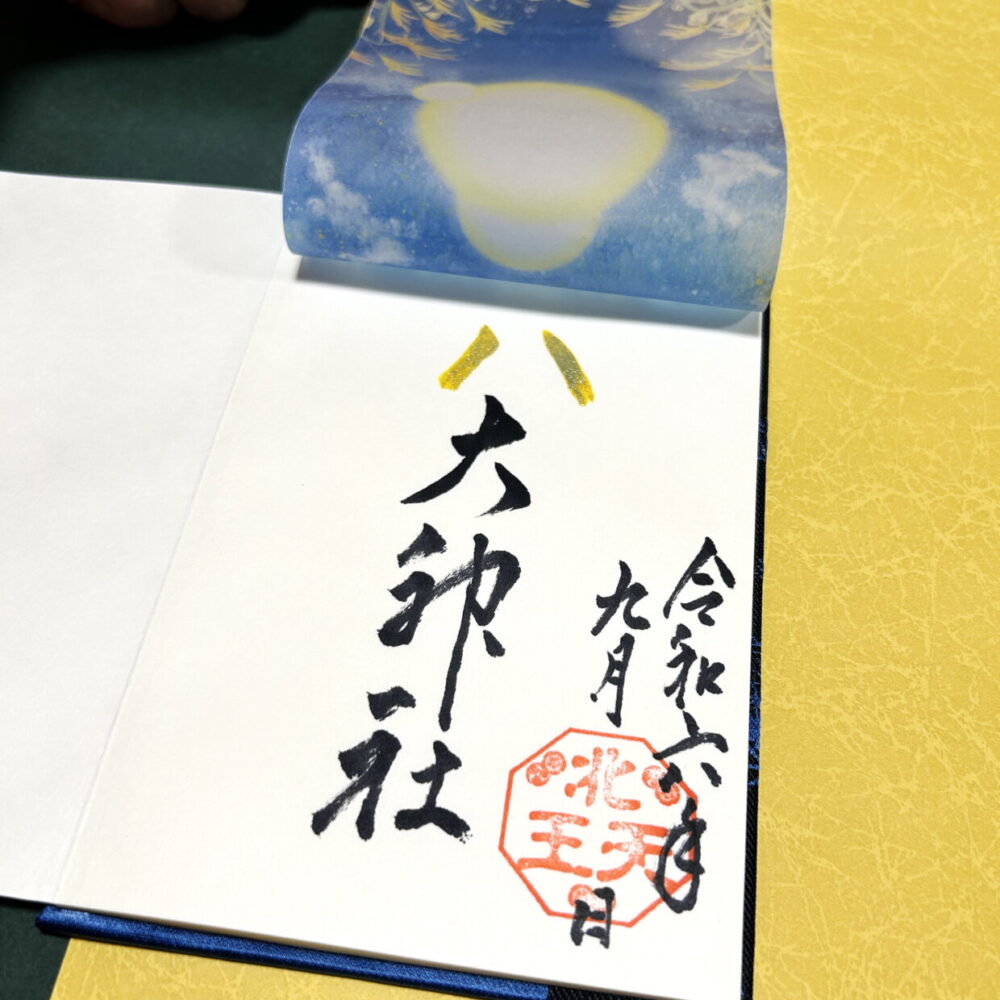 令和六年
九月 日
八大神社
北
天王